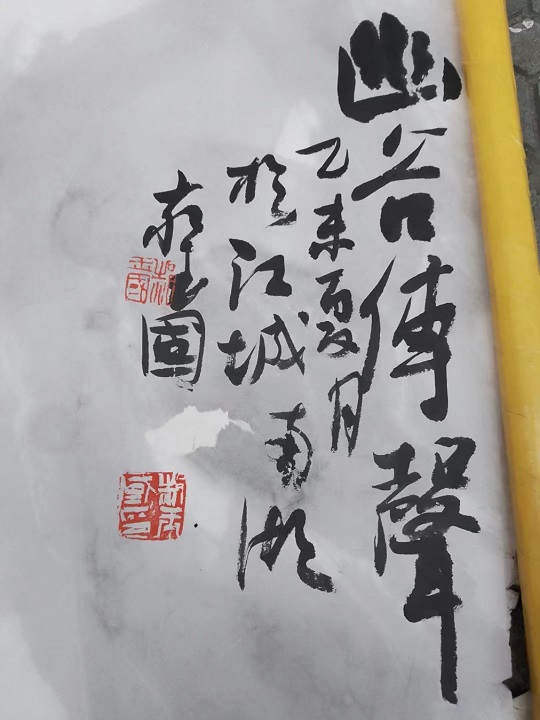 幽谷傳聲
乙未夏月
於江城南湖
郝玉國